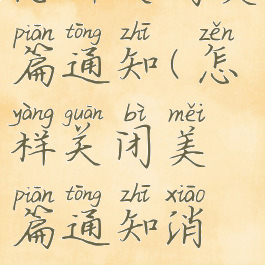 piān tōng zhī zěn
篇通知(怎
yàng guān bì měi
样关闭美
piān tōng zhī xiāo
篇通知消